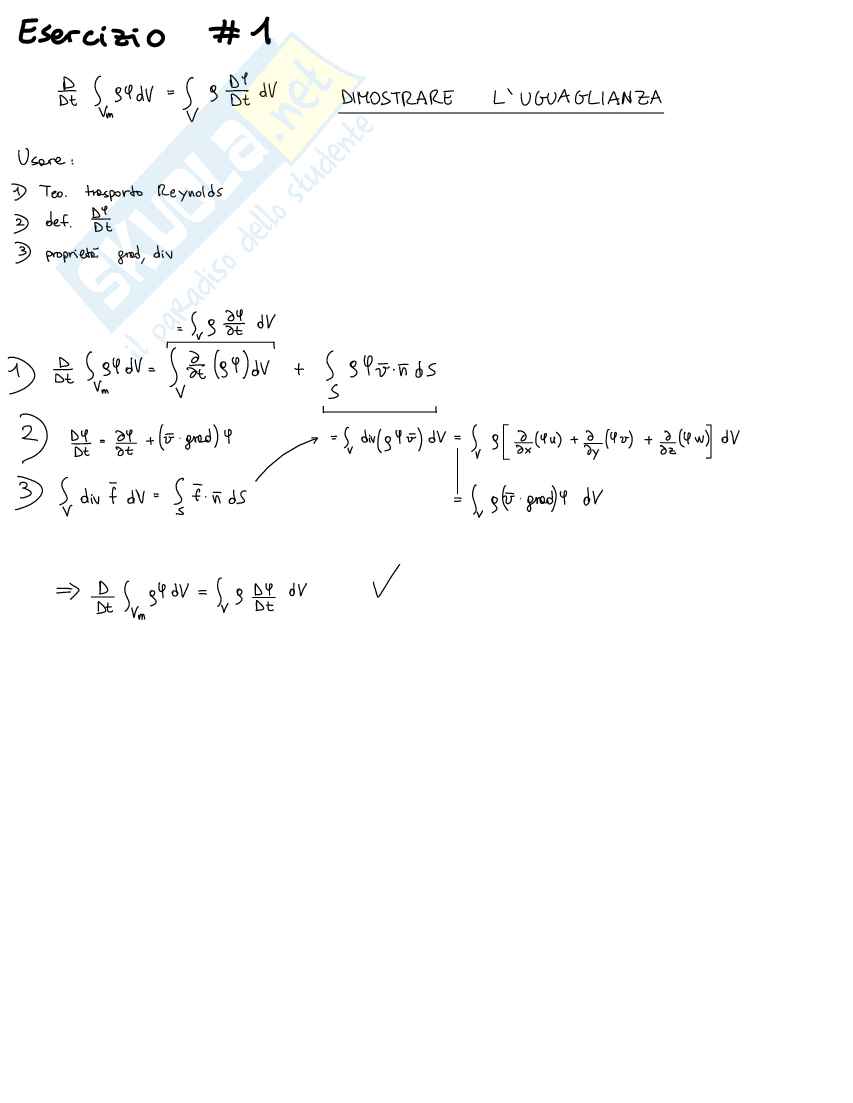 Esercizio #1
D/Dt ∫_Vm ρφdV = ∫_V ρ Dφ/Dt dV DIMOSTRARE L'UGUAGLIANZA
Usare:
1) Teo. trasporto Reynolds
2) def. Dφ/Dt
3) proprietà grad, div
= ∫_V ρ ∂φ/∂t dV
1) D/Dt ∫_Vm ρφdV = ∫_V ∂/∂t (ρφ)dV + ∫_S ρφ v̄·n̄ dS
2) Dφ/Dt = ∂φ/∂t + (v̄·grad)φ = ∫_V div(ρφv̄) dV = ∫_V ρ[∂/∂x(φu) + ∂/∂y(φv) + ∂/∂z(φw)] dV
3) ∫_V div f̄ dV = ∫_S f̄·n̄ dS = ∫_V ρ(v̄·grad)φ dV
⇒ D/Dt ∫_Vm ρφdV = ∫_V ρ Dφ/Dt dV ✓
SKUOLA.net
il paradiso dello studente